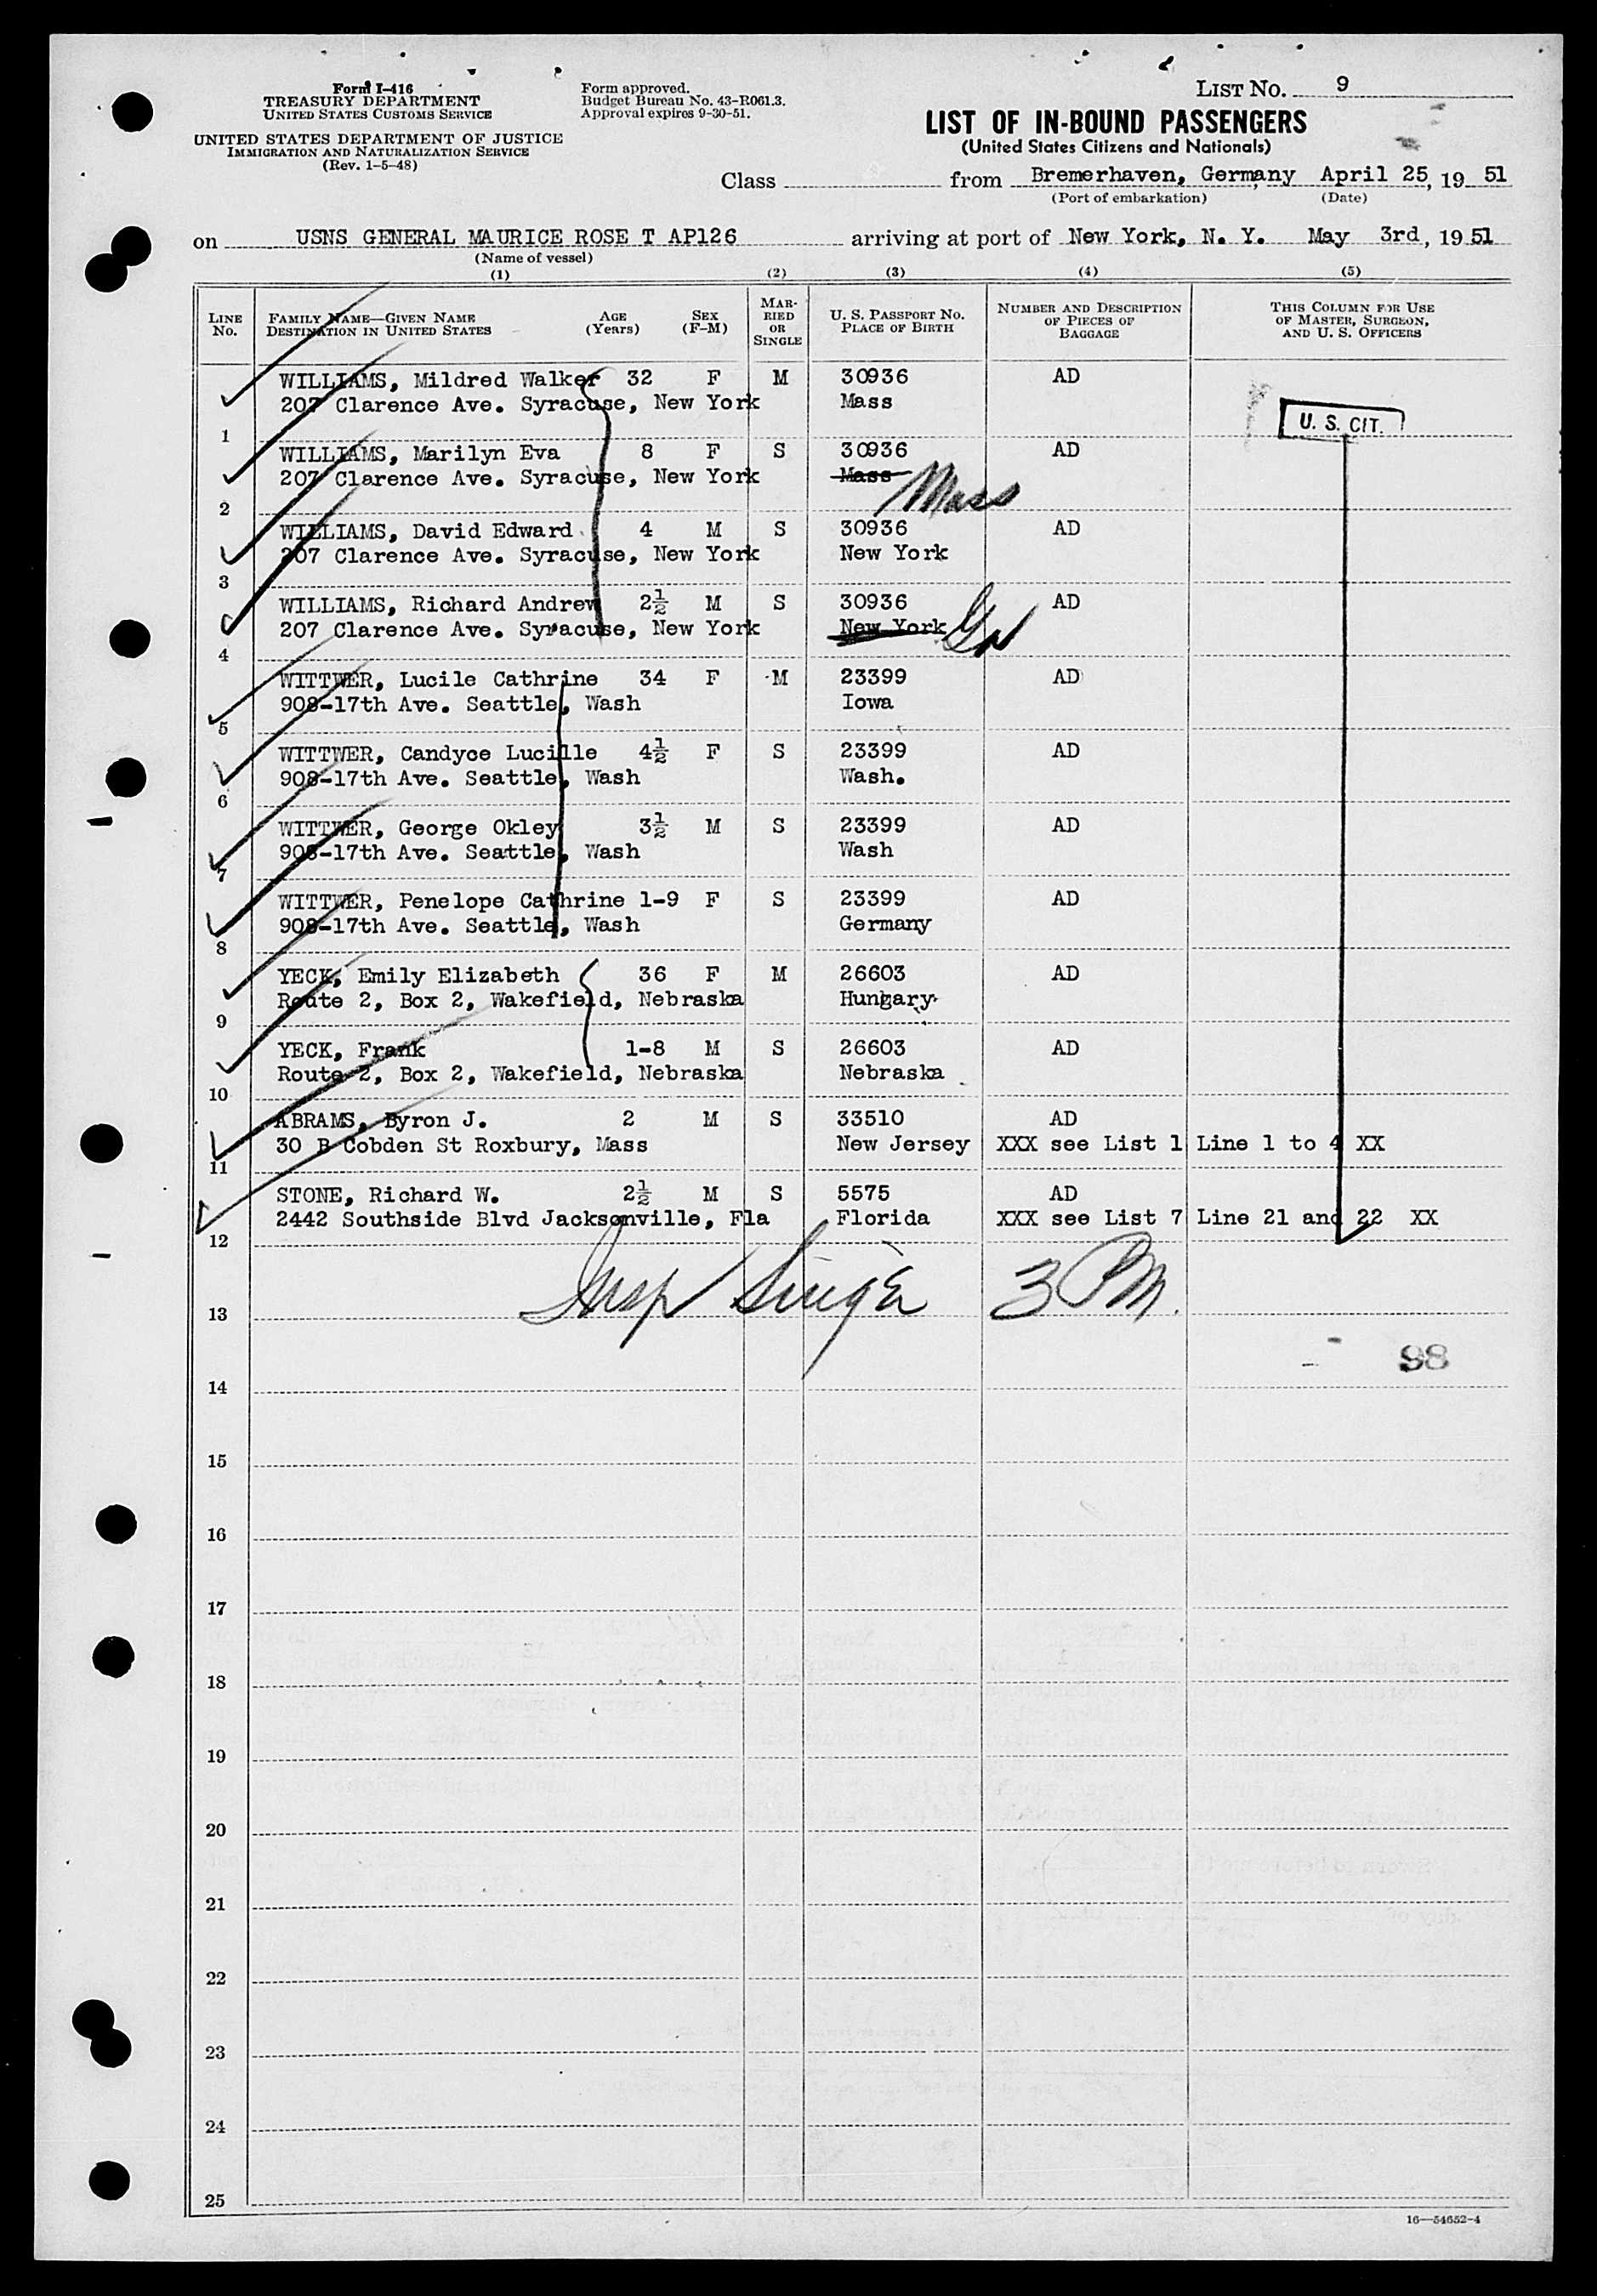 Form I-416
TREASURY DEPARTMENT
UNITED STATES CUSTOMS SERVICE
UNITED STATES DEPARTMENT OF JUSTICE
IMMIGRATION AND NATURALIZATION SERVICE
(Rev. 1-5-48)
Form approved.
Budget Bureau No. 43-R061.3.
Approval expires 9-30-51.
LIST NO. 9
LIST OF IN-BOUND PASSENGERS
(United States Citizens and Nationals)
Class from Bremerhaven, Germany April 25, 19 51
(Port of embarkation) (Date)
on USNS GENERAL MAURICE ROSE T AP126 arriving at port of New York, N. Y. May 3rd, 19 51
(Name of vessel)
(1) (2) (3) (4) (5)
LINE NO. FAMILY NAME—GIVEN NAME DESTINATION IN UNITED STATES AGE (Years) SEX (F-M) MARRIED OR SINGLE U. S. PASSPORT NO. PLACE OF BIRTH NUMBER AND DESCRIPTION OF PIECES OF BAGGAGE THIS COLUMN FOR USE OF MASTER, SURGEON, AND U. S. OFFICERS
WILLIAMS, Mildred Walker 32 F M 30936 AD
207 Clarence Ave. Syracuse, New York Mass
U. S. CIT.
1
WILLIAMS, Marilyn Eva 8 F S 30936 AD
207 Clarence Ave. Syracuse, New York Mass Mass
2
WILLIAMS, David Edward 4 M S 30936 AD
207 Clarence Ave. Syracuse, New York New York
3
WILLIAMS, Richard Andrew 2½ M S 30936 AD
207 Clarence Ave. Syracuse, New York New York
4
WITTWER, Lucile Cathrine 34 F M 23399 AD
908-17th Ave. Seattle, Wash Iowa
5
WITTWER, Candyce Lucille 4½ F S 23399 AD
908-17th Ave. Seattle, Wash Wash.
6
WITTWER, George Okley 3½ M S 23399 AD
908-17th Ave. Seattle, Wash Wash
7
WITTWER, Penelope Cathrine 1-9 F S 23399 AD
908-17th Ave. Seattle, Wash Germany
8
YECK, Emily Elizabeth 36 F M 26603 AD
Route 2, Box 2, Wakefield, Nebraska Hungary
9
YECK, Frank 1-8 M S 26603 AD
Route 2, Box 2, Wakefield, Nebraska Nebraska
10
ABRAMS, Byron J. 2 M S 33510 AD
30 B Cobden St Roxbury, Mass New Jersey XXX see List 1 Line 1 to 4 XX
11
STONE, Richard W. 2½ M S 5575 AD
2442 Southside Blvd Jacksonville, Fla Florida XXX see List 7 Line 21 and 22 XX
12
Insp 3 PM.
13
98
14
15
16
17
18
19
20
21
22
23
24
25
16—54652-4